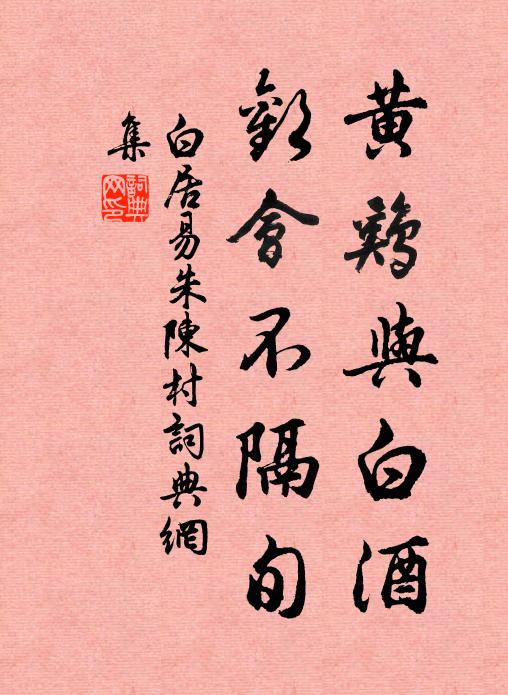 黄鷄與白酒
歡會不隔旬
白居易朱陳村詞典網
集
詞典
网印